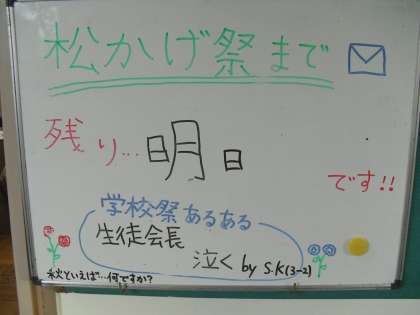 松かげ祭まで
残り… 明日 です!!
学校祭あるある
生徒会長
泣く by S.K(3-2)
秋といえば…何ですか?